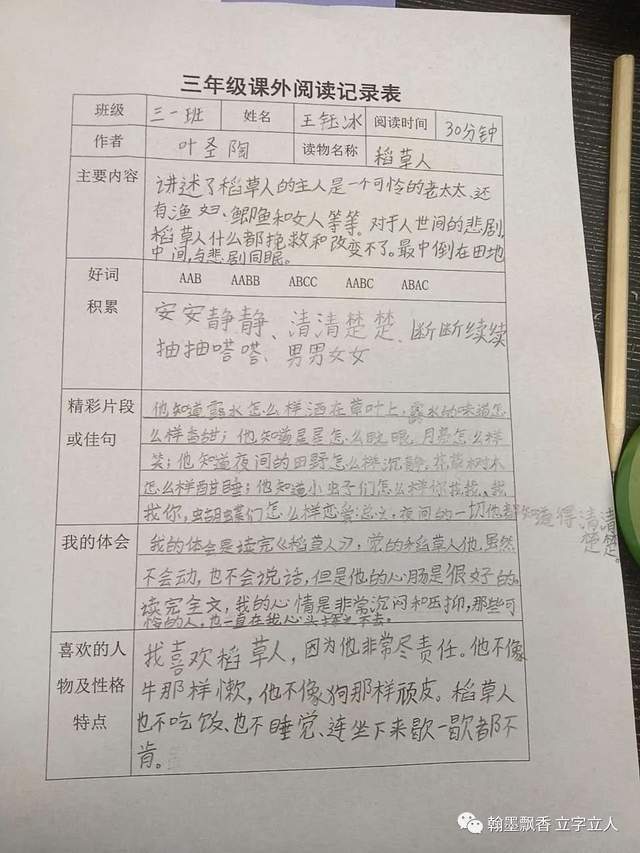 三年级课外阅读记录表
班级 三一班 姓名 王钰冰 阅读时间 30分钟
作者 叶圣陶 读物名称 稻草人
主要内容
讲述了稻草人的主人是一个可怜的老太太、还
有渔妇、鲫鱼和女人等等。对于人世间的悲剧,
稻草人什么都挽救和改变不了。最中倒在田地
中间,与悲剧同眠。
好词
积累
AAB AABB ABCC AABC ABAC
安安静静、清清楚楚、断断续续
抽抽嗒嗒、男男女女
精彩片段
或佳句
他知道露水怎么样洒在草叶上,露水的味道怎
么样香甜;他知道星星怎么眨眼,月亮怎么样
笑;他知道夜间的田野怎么样沉静,花草树木
怎么样酣睡;他知道小虫子们怎么样你找我、我
找你,蝴蝶们怎么样恋爱总之,夜间的一切他都知道得清清
楚楚。
我的体会
我的体会是读完《稻草人》,觉的稻草人他,虽然
不会动,也不会说话,但是他的心肠是很好的。
读完全文,我的心情是非常沉闷和压抑,那些可
怜的人,也一直在我心头挥之不去。
喜欢的人
物及性格
特点
我喜欢稻草人,因为他非常尽责任。他不像
牛那样懒,他不像狗那样顽皮。稻草人
也不吃饭、也不睡觉、连坐下来歇一歇都不
肯。
翰墨飘香 立字立人